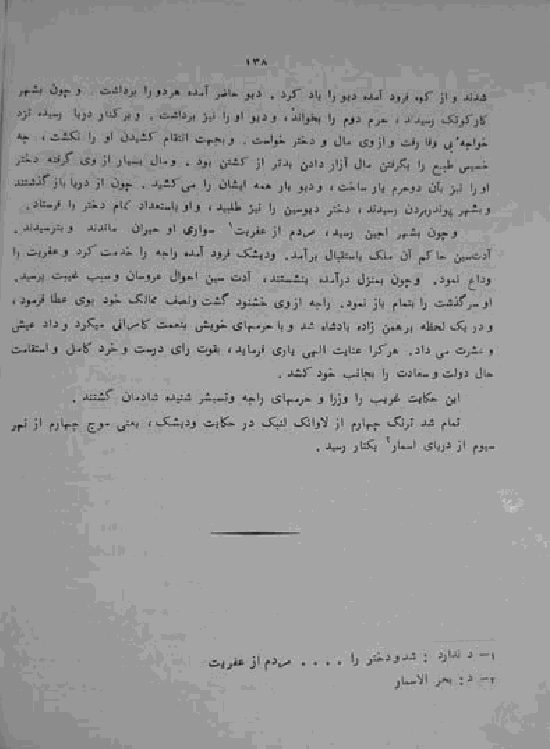 ۱۳۸
شدند و از کوه فرود آمده دیو را یاد کرد . دیو حاضر آمده هردو را برداشت . و چون بشهر
کارکوتک رسیدند ، حرم دوم را بخواند ، و دیو او را نیز برداشت . و برکنار دریا رسید، نزد
خواجه بی وفا رفت و از وی مال و دختر خواست . و بجهت انتقام کشیدن او را نکشت ، چه
خسیس طبع را بگرفتن مال آزار دادن بدتر از کشتن بود . و مال بسیار از وی گرفته دختر
او را نیز بآن دو حرم یار ساخت ، و دیو بار همه ایشان را می کشید . چون از دریا باز گذشتند
و بشهر پوندربردن رسیدند ، دختر دیوسین را نیز طلبید ، و او باستعداد تمام دختر را فرستاد .
و چون بشهر اجین رسید ، مردم از عفریت۱ سواری او حیران ماندند و بترسیدند .
آدت‌سین حاکم آن ملک باستقبال برآمد. ودیشک فرود آمده راجه را خدمت کرد و عفریت را
وداع نمود. وچون بمنزل درآمده بنشستند ، آدت سین احوال عروسان و سبب غیبت پرسید.
او سرگذشت را بتمام باز نمود. راجه از وی خشنود گشت ونصف ممالک خود بوی عطا فرمود ،
و در یک لحظه برهمن زاده بادشاه شد و با حرمهای خویش بنعمت کامرانی میکرد و داد عیش
و عشرت می داد. هر کرا عنایت الهی یاری فرماید ، بقوت رای درست و خرد کامل و استقامت
حال دولت و سعادت را بجانب خود کشد .
این حکایت غریب را وزرا و حرمهای راجه وتسیشر شنیده شادمان گشتند .
تمام شد ترنگ چهارم از لاوانک لنبک در حکایت ودیشک ، یعنی موج چهارم از نهر
سیوم از دریای اسمار۲ بکنار رسید .
۱- د ندارد : شد ودختر را . . . . مردم از عفریت
۲- د : بحر الاسمار